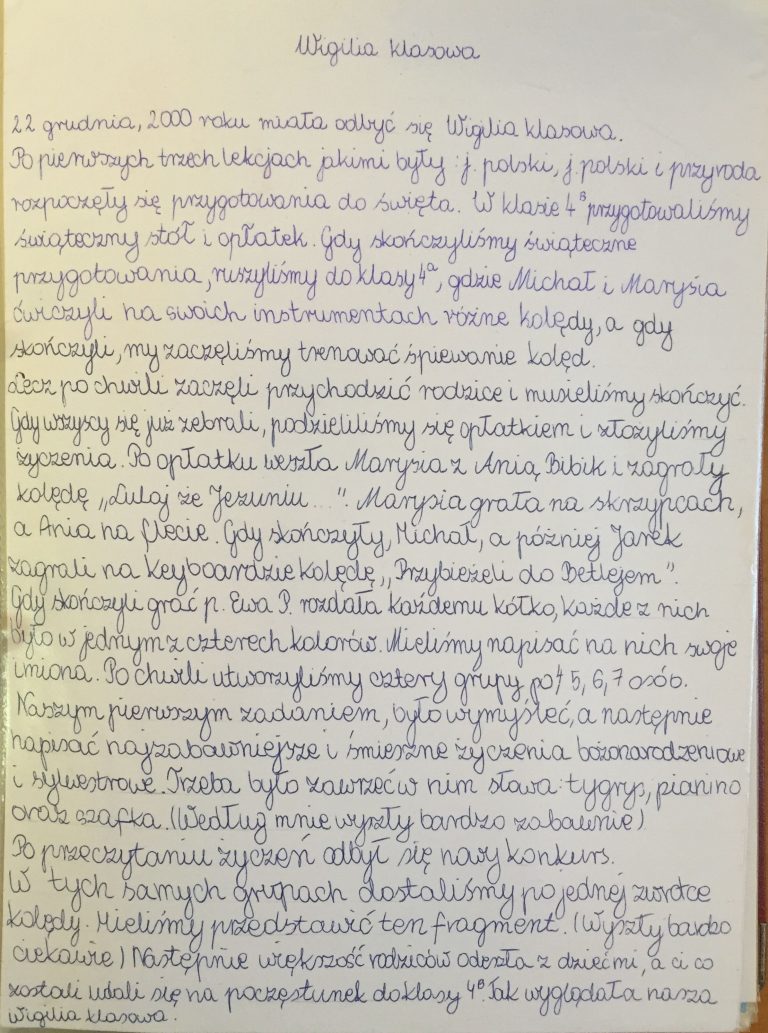 Wigilia klasowa
22 grudnia, 2000 roku miała odbyć się Wigilia klasowa.
Po pierwszych trzech lekcjach jakimi były: j. polski, j. polski i przyroda
rozpoczęły się przygotowania do święta. W klasie 4ᴮ przygotowaliśmy
świąteczny stół i opłatek. Gdy skończyliśmy świąteczne
przygotowania, ruszyliśmy do klasy 4ᵃ, gdzie Michał i Marysia
ćwiczyli na swoich instrumentach różne kolędy, a gdy
skończyli, my zaczęliśmy trenować śpiewanie kolęd.
Lecz po chwili zaczęli przychodzić rodzice i musieliśmy skończyć.
Gdy wszyscy się już zebrali, podzieliliśmy się opłatkiem i złożyliśmy
życzenia. Po opłatku weszła Marysia z Anią Bibik i zagrały
kolędę „Lulaj że Jezuniu...". Marysia grała na skrzypcach,
a Ania na flecie. Gdy skończyły, Michał, a później Jarek
zagrali na keyboardzie kolędę „Przybieżeli do Betlejem".
Gdy skończyli grać p. Ewa P. rozdała każdemu kółko, każde z nich
było w jednym z czterech kolorów. Mieliśmy napisać na nich swoje
imiona. Po chwili utworzyliśmy cztery grupy po 5, 6, 7 osób.
Naszym pierwszym zadaniem, było wymyśleć, a następnie
napisać najzabawniejsze i śmieszne życzenia bożonarodzeniowe
i sylwestrowe. Trzeba było zawrzeć w nim słowa: tygrys, pianino
oraz szafka. (Według mnie wyszły bardzo zabawnie)
Po przeczytaniu życzeń odbył się nowy konkurs.
W tych samych grupach dostaliśmy po jednej zwrotce
kolędy. Mieliśmy przedstawić ten fragment. (Wyszły bardzo
ciekawie) Następnie większość rodziców odeszła z dziećmi, a ci co
zostali udali się na poczęstunek do klasy 4ᴮ. Tak wyglądała nasza
Wigilia klasowa.